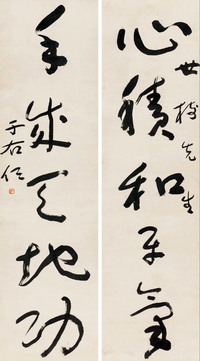 心積和平氣
世棱先生
手成天地功
于右任